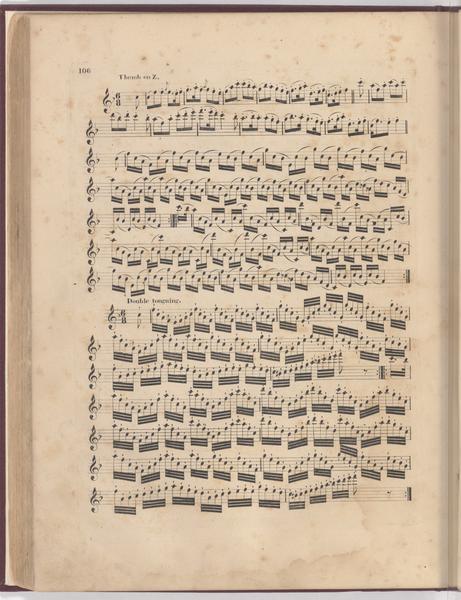 106
Thumb on Z.
6
8
Double tonguing.
6
8